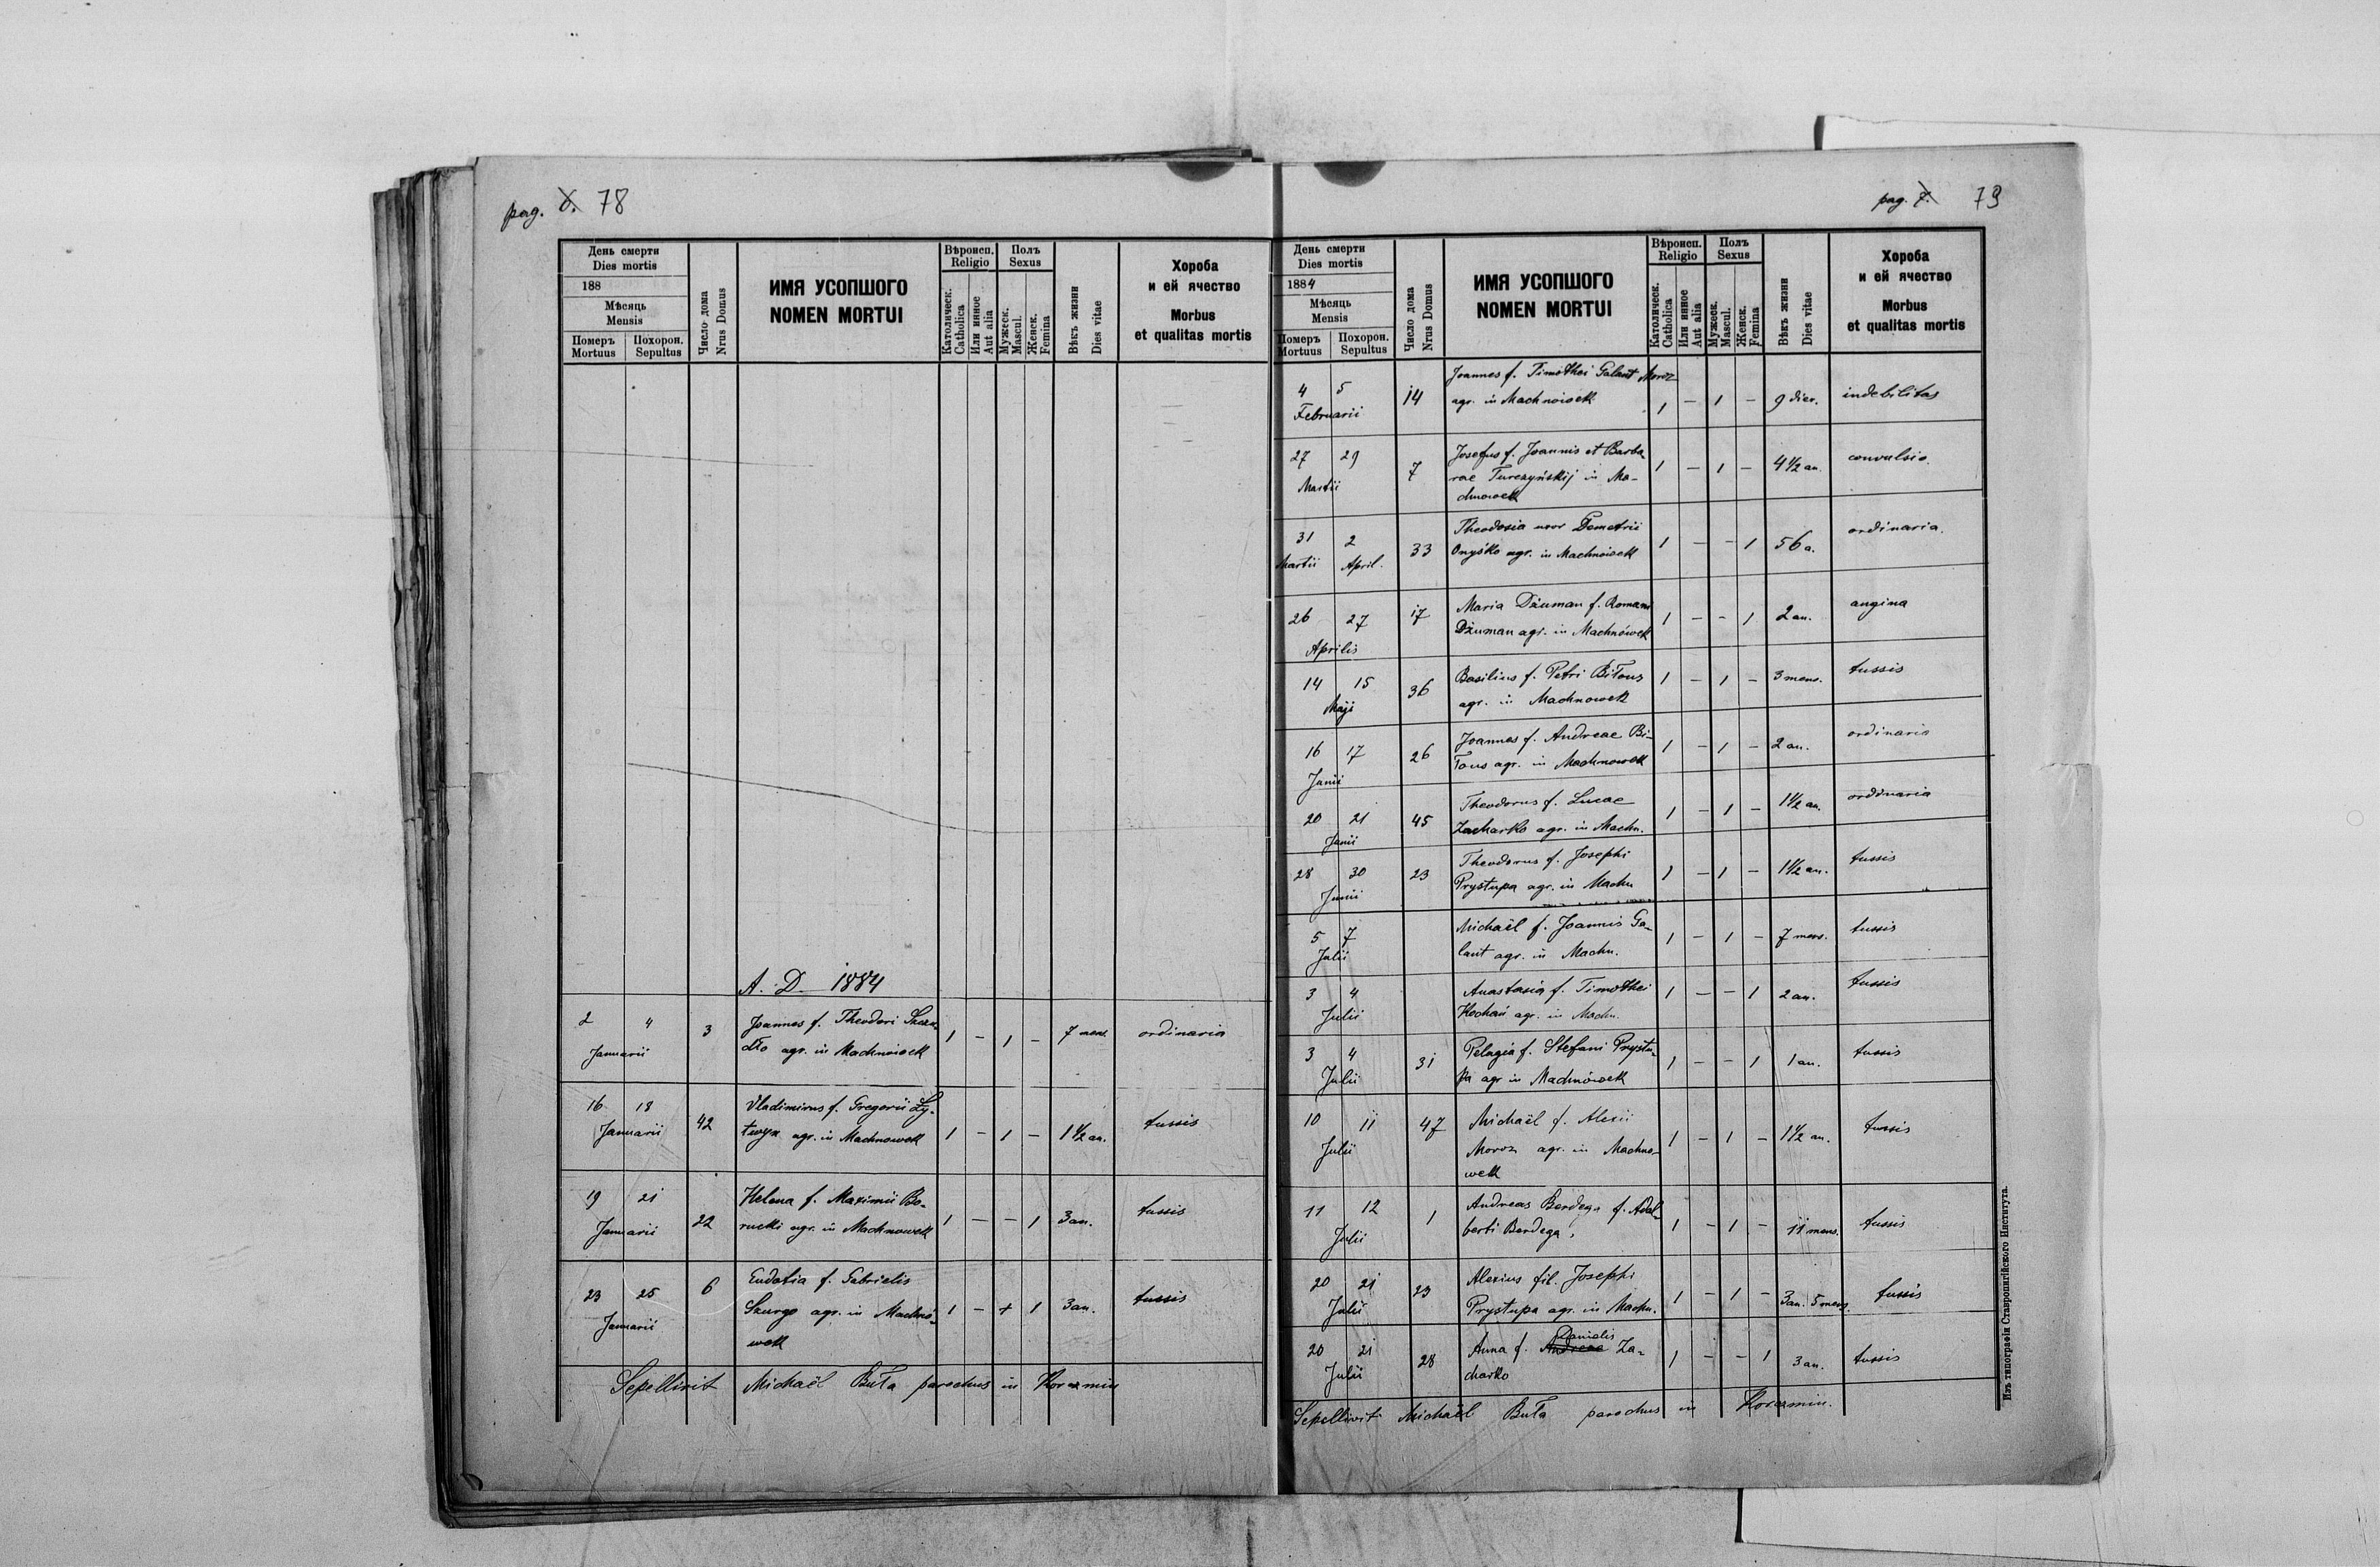 pag. 78
День смерти
Dies mortis
188
Мѣсяць
Mensis
Померъ
Mortuus
Похорон.
Sepultus
Число дома
Nrus Domus
ИМЯ УСОПШОГО
NOMEN MORTUI
Вѣроисп.
Religio
Католическ.
Catholica
Или инное
Aut alia
Полъ
Sexus
Мужеск.
Mascul.
Женск.
Femina
Вѣкъ жизни
Dies vitae
Хороба
и ей ячество
Morbus
et qualitas mortis
A. D. 1884
2 4 3 Joannes f. Theodori
Januarii dło agr. in Machnówek 1 – 1 – 7 mens. ordinaria
16 18 42 Vladimirus f. Gregorii Ły-
Januarii twyn agr. in Machnowek 1 – 1 – 1½ an. tussis
19 21 22 Helena f. Maximii Bo-
Januarii rucki agr. in Machnowek 1 – – 1 3 an. tussis
23 25 6 Eudoxia f. Gabrielis
Januarii Szurgo agr. in Machnó- 1 – + 1 3 an. tussis
wek
Sepellivit Michaël Buła parochus in Korczmin
pag. 7. 79
День смерти
Dies mortis
1884
Мѣсяць
Mensis
Померъ
Mortuus
Похорон.
Sepultus
Число дома
Nrus Domus
ИМЯ УСОПШОГО
NOMEN MORTUI
Вѣроисп.
Religio
Католическ.
Catholica
Или инное
Aut alia
Полъ
Sexus
Мужеск.
Mascul.
Женск.
Femina
Вѣкъ жизни
Dies vitae
Хороба
и ей ячество
Morbus
et qualitas mortis
4 5 14 Joannes f. Timothei Galant Moroz
Februarii agr. in Machnówek 1 – 1 – 9 dier. indebilitas
27 29 7 Josefus f. Joannis et Barba
Martii rae Turczyńskij in Ma- 1 – 1 – 4½ an. convulsio
chnowek
31 2 33 Theodosia uxor Demetrii
Martii April. Onyśko agr. in Machnówek 1 – – 1 56 a. ordinaria.
26 27 17 Maria Dżuman f. Romani
Aprilis Dżuman agr. in Machnówek 1 – – 1 2 an. angina
14 15 36 Basilius f. Petri Biłous
Maji agr. in Machnowek 1 – 1 – 3 mens. tussis
16 17 26 Joannes f. Andreae Bi-
Junii łous agr. in Machnowek 1 – 1 – 2 an. ordinaria
20 21 45 Theodorus f. Lucae
Junii Zacharko agr. in Machn. 1 – 1 – 1½ an. ordinaria
28 30 23 Theodorus f. Josephi
Junii Prystupa agr. in Machn 1 – 1 – 1½ an. tussis
5 7 Michaël f. Joannis Ga-
Julii lant agr. in Machn. 1 – 1 – 7 mens. tussis
3 4 Anastasia f. Timothei
Julii Kochań agr. in Machn. 1 – – 1 2 an. tussis
3 4 31 Pelagia f. Stefani Prystu-
Julii pa agr in Machnówek 1 – – 1 1 an. tussis
10 11 47 Michaël f. Alexii
Julii Moroz agr. in Machno- 1 – 1 – 1½ an. tussis
wek
11 12 1 Andreas Berdega f. Adal-
Julii berti Berdega, 1 – 1 – 11 mens. tussis
20 21 23 Alexius fil. Josephi
Julii Prystupa agr. in Machn. 1 – 1 – 3 an. 5 mens. tussis
20 21 28 Anna f. Andreae Danielis Za-
Julii charko 1 – – 1 3 an. tussis
Sepellivit Michaël Buła parochus in Korczmin.
Изъ типографіи Ставропигійского Института.